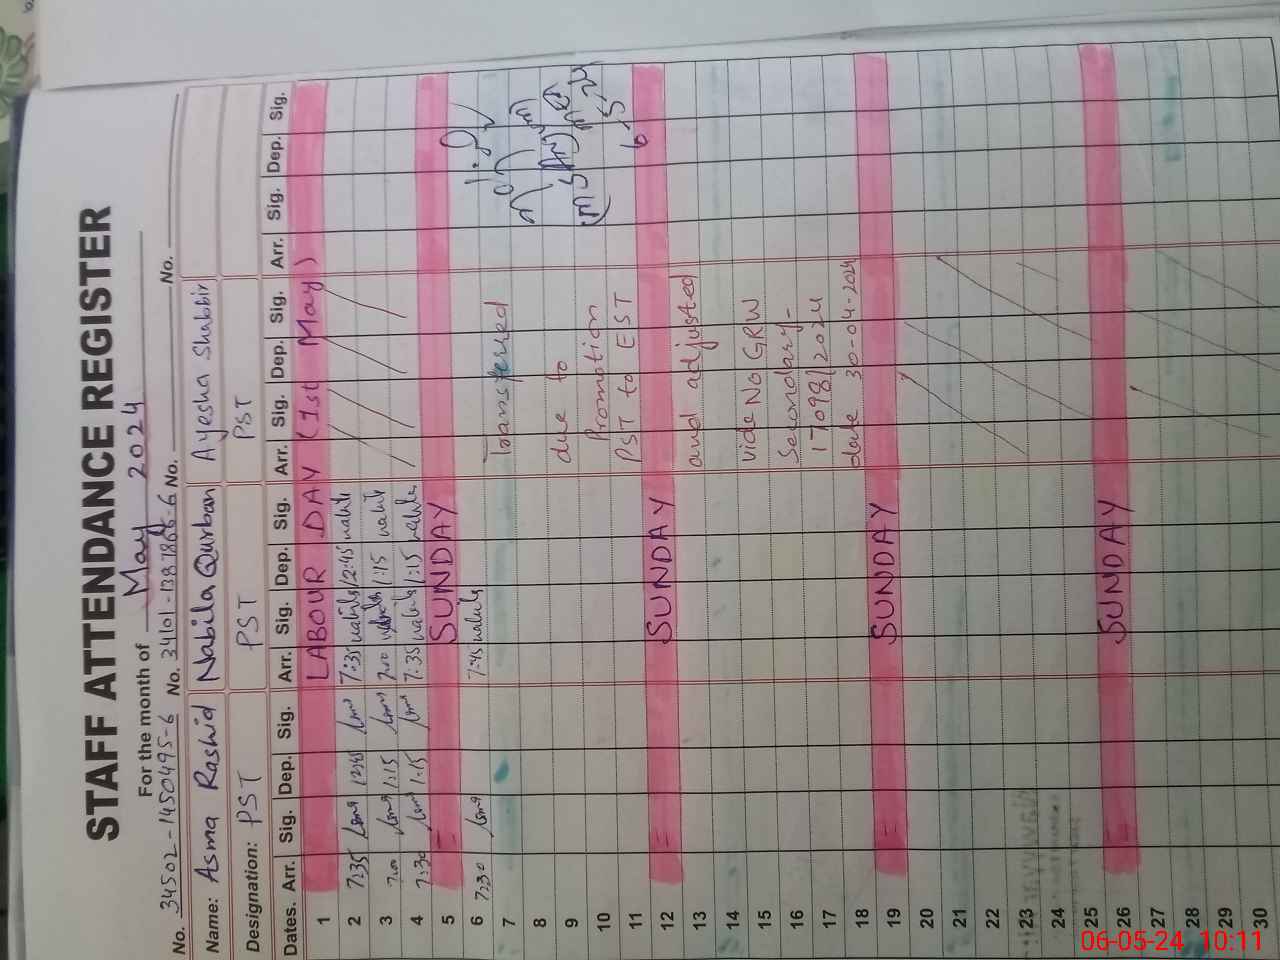 STAFF ATTENDANCE REGISTER
For the month of May 2024
No. 34502-1450495-6 No. 34101-1387866-6 No. No.
Name: Asma Rashid Nabila Qurban Ayesha Shabbir
Designation: PST PST PST
Dates. Arr. Sig. Dep. Sig. Arr. Sig. Dep. Sig. Arr. Sig. Dep. Sig. Arr. Sig. Dep. Sig.
1 LABOUR DAY (1st May)
2 7:35 12:45 7:35 12:45
3 7:00 1:15 7:00 1:15
4 7:30 1:15 7:35 1:15
5 = SUNDAY
6 7:30 7:45
7 Transferred
8
9 due to
10 Promotion
11 PST to EST
12 = SUNDAY
13 and adjusted
14
15 vide No GRW
16 Secondary-
17 17098/2024
18 date 30-04-2024
19 = SUNDAY
20
21
22
23
24
25
26 = SUNDAY
27
28
29
30
6-5-24
06-05-24 10:11